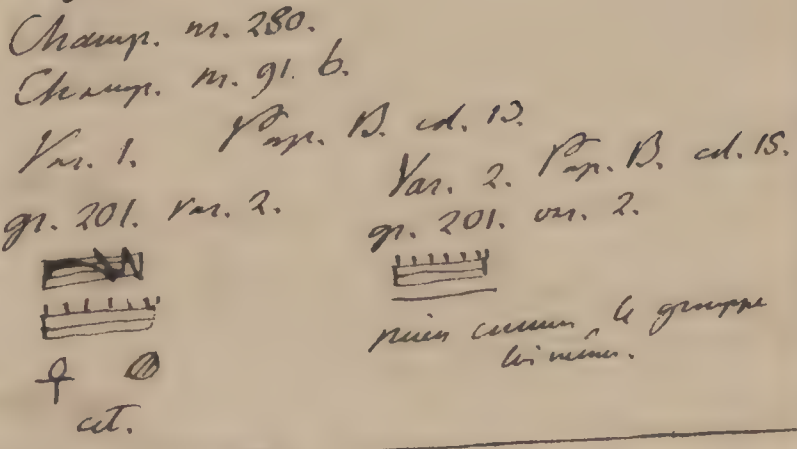 Champ. m. 280.
Champ. m. 91. b.
Var. 1. Pap. B. col. 13.
gr. 201. var. 2.
cet.
Var. 2. Pap. B. col. 15.
gr. 201. var. 2.
le grouppe
lui même.